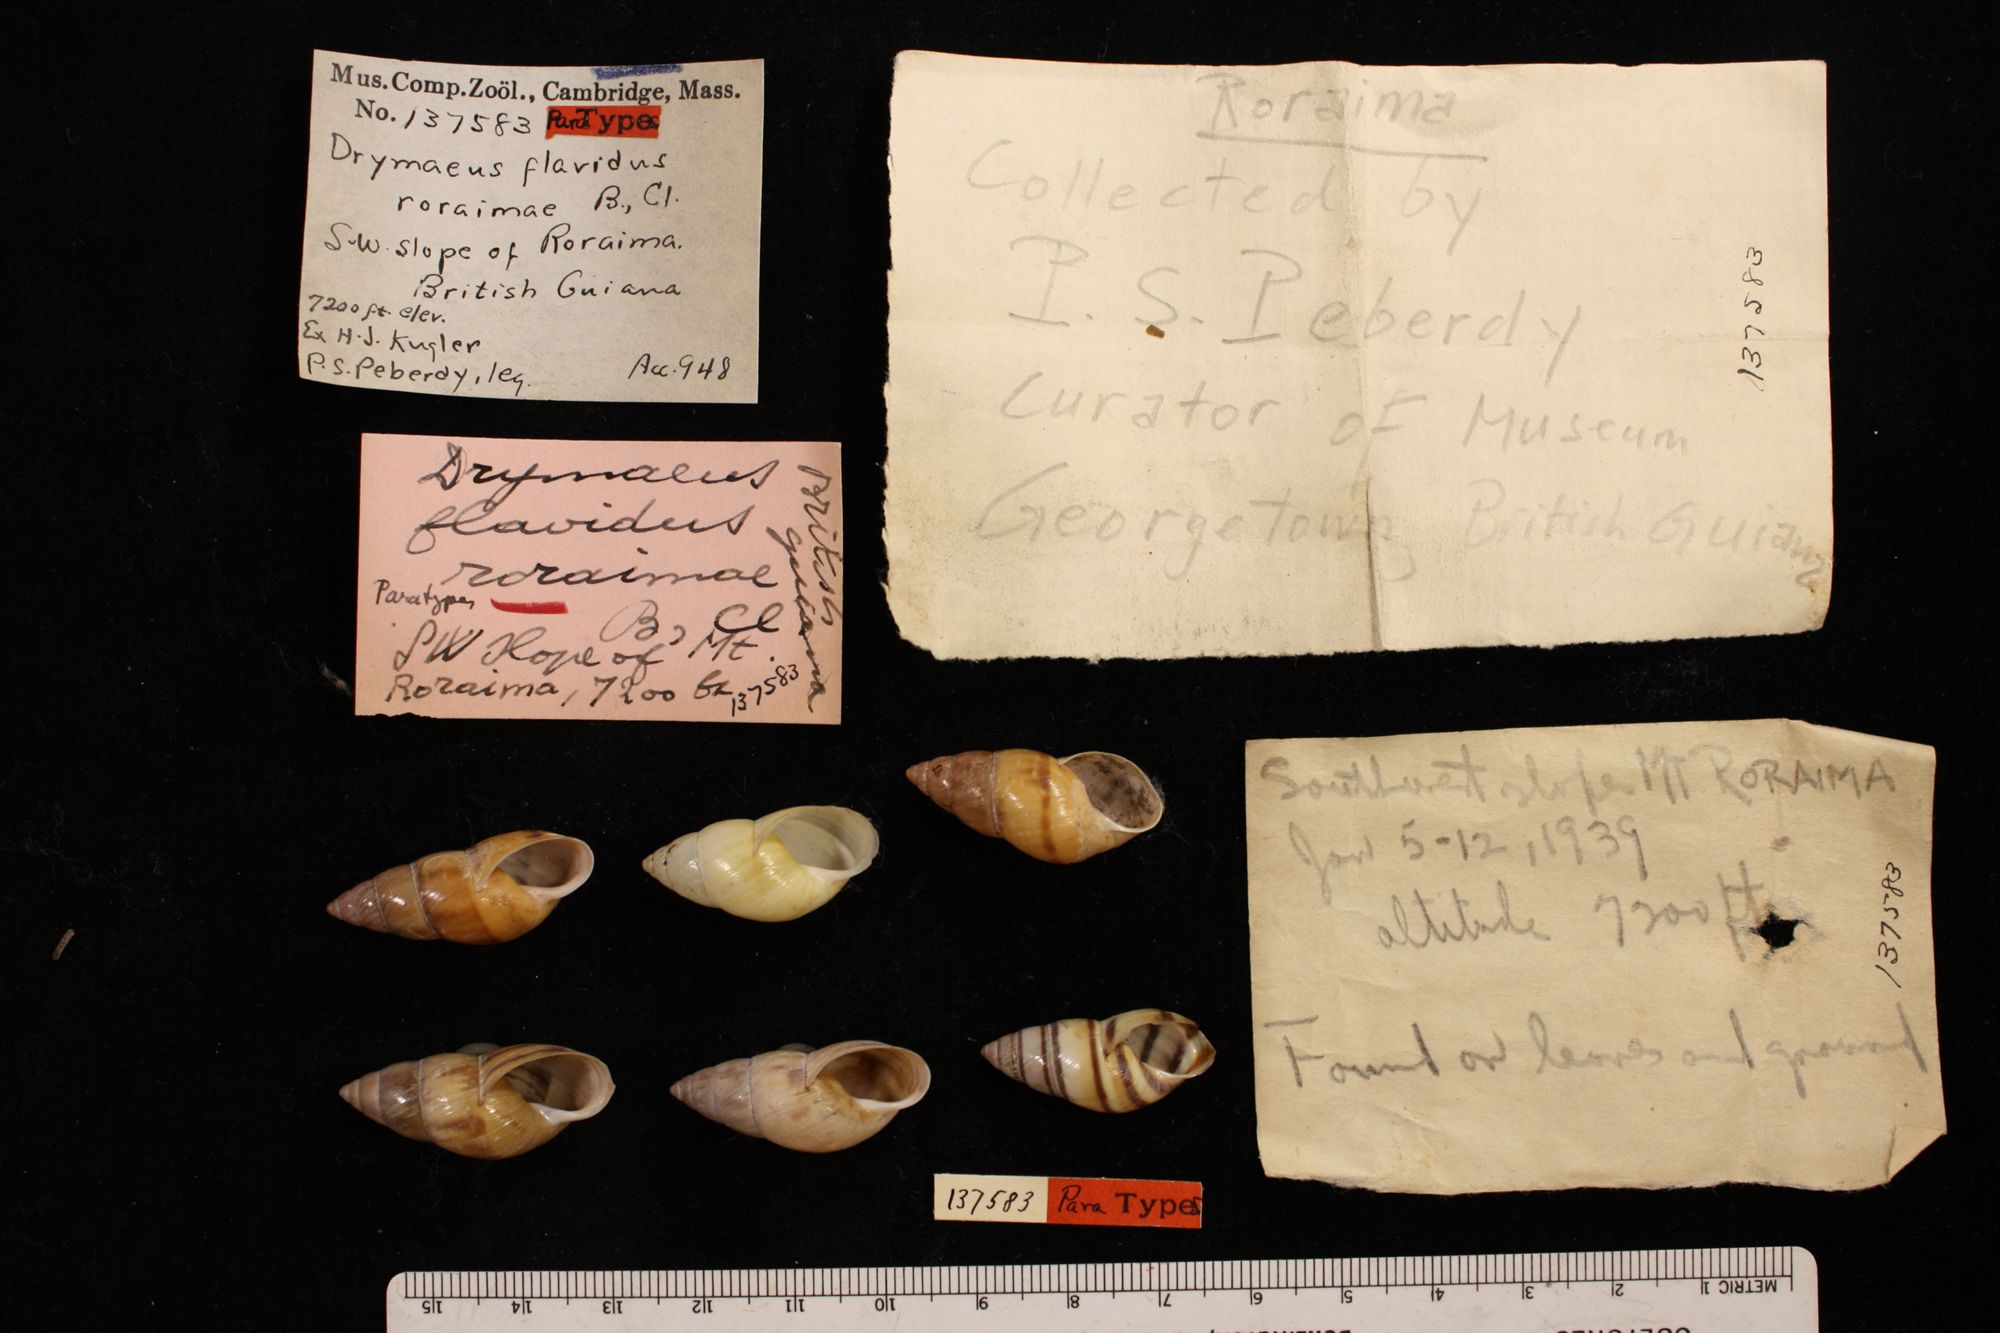 Mus. Comp. Zoöl., Cambridge, Mass.
No. 137583 ParaTypes
Drymaeus flavidus
roraimae B., Cl.
S.W. slope of Roraima.
British Guiana
7200 ft. elev.
Ex H.J. Kugler
P.S. Peberdy, leg.
Acc. 948
Drymaeus
flavidus
roraimae
Paratypes
B, Cl
SW Slope of Mt.
Roraima, 7200 ft
137583
British
guiana
Roraima
Collected by
P. S. Peberdy
Curator of Museum
Georgetown British Guiana
137583
Southwest slope Mt RORAIMA
Jan 5-12, 1939
altitude 7200 ft
Found on leaves and ground
137583
137583 Para Types
METRIC 1 2 3 4 5 6 7 8 9 10 11 12 13 14 15